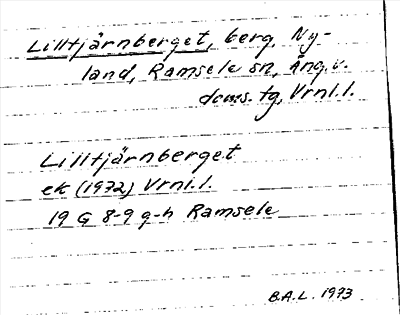 Lilltjärnberget, berg, Ny-
land, Ramsele sn, Ång. v.
doms. tg, Vrnl. l.
Lilltjärnberget
ek (1972) Vrnl. l.
19 G 8-9 g-h Ramsele
B.A.L. 1973